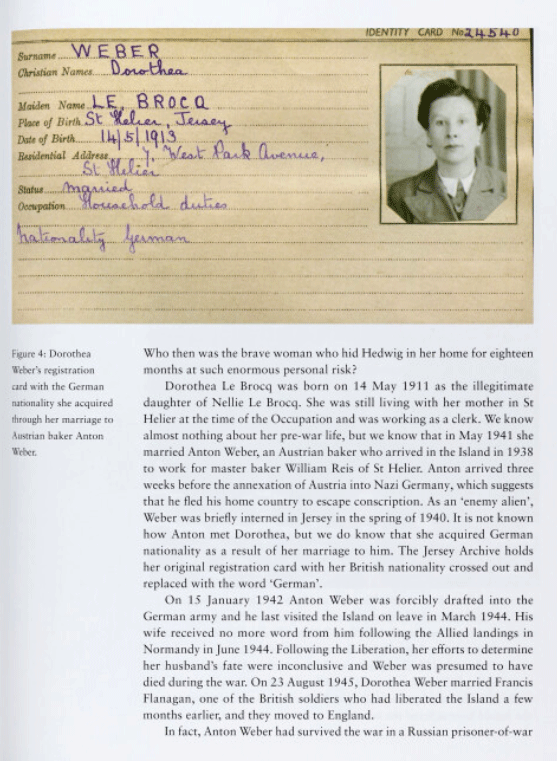 IDENTITY CARD No 24540
Surname WEBER
Christian Names Dorothea
Maiden Name LE BROCQ
Place of Birth St Helier, Jersey
Date of Birth 14/5/1913
Residential Address 7, West Park Avenue,
St Helier
Status married
Occupation Household duties
Nationality German
Figure 4: Dorothea
Weber's registration
card with the German
nationality she acquired
through her marriage to
Austrian baker Anton
Weber.
Who then was the brave woman who hid Hedwig in her home for eighteen
months at such enormous personal risk?
Dorothea Le Brocq was born on 14 May 1911 as the illegitimate
daughter of Nellie Le Brocq. She was still living with her mother in St
Helier at the time of the Occupation and was working as a clerk. We know
almost nothing about her pre-war life, but we know that in May 1941 she
married Anton Weber, an Austrian baker who arrived in the Island in 1938
to work for master baker William Reis of St Helier. Anton arrived three
weeks before the annexation of Austria into Nazi Germany, which suggests
that he fled his home country to escape conscription. As an 'enemy alien',
Weber was briefly interned in Jersey in the spring of 1940. It is not known
how Anton met Dorothea, but we do know that she acquired German
nationality as a result of her marriage to him. The Jersey Archive holds
her original registration card with her British nationality crossed out and
replaced with the word 'German'.
On 15 January 1942 Anton Weber was forcibly drafted into the
German army and he last visited the Island on leave in March 1944. His
wife received no more word from him following the Allied landings in
Normandy in June 1944. Following the Liberation, her efforts to determine
her husband's fate were inconclusive and Weber was presumed to have
died during the war. On 23 August 1945, Dorothea Weber married Francis
Flanagan, one of the British soldiers who had liberated the Island a few
months earlier, and they moved to England.
In fact, Anton Weber had survived the war in a Russian prisoner-of-war